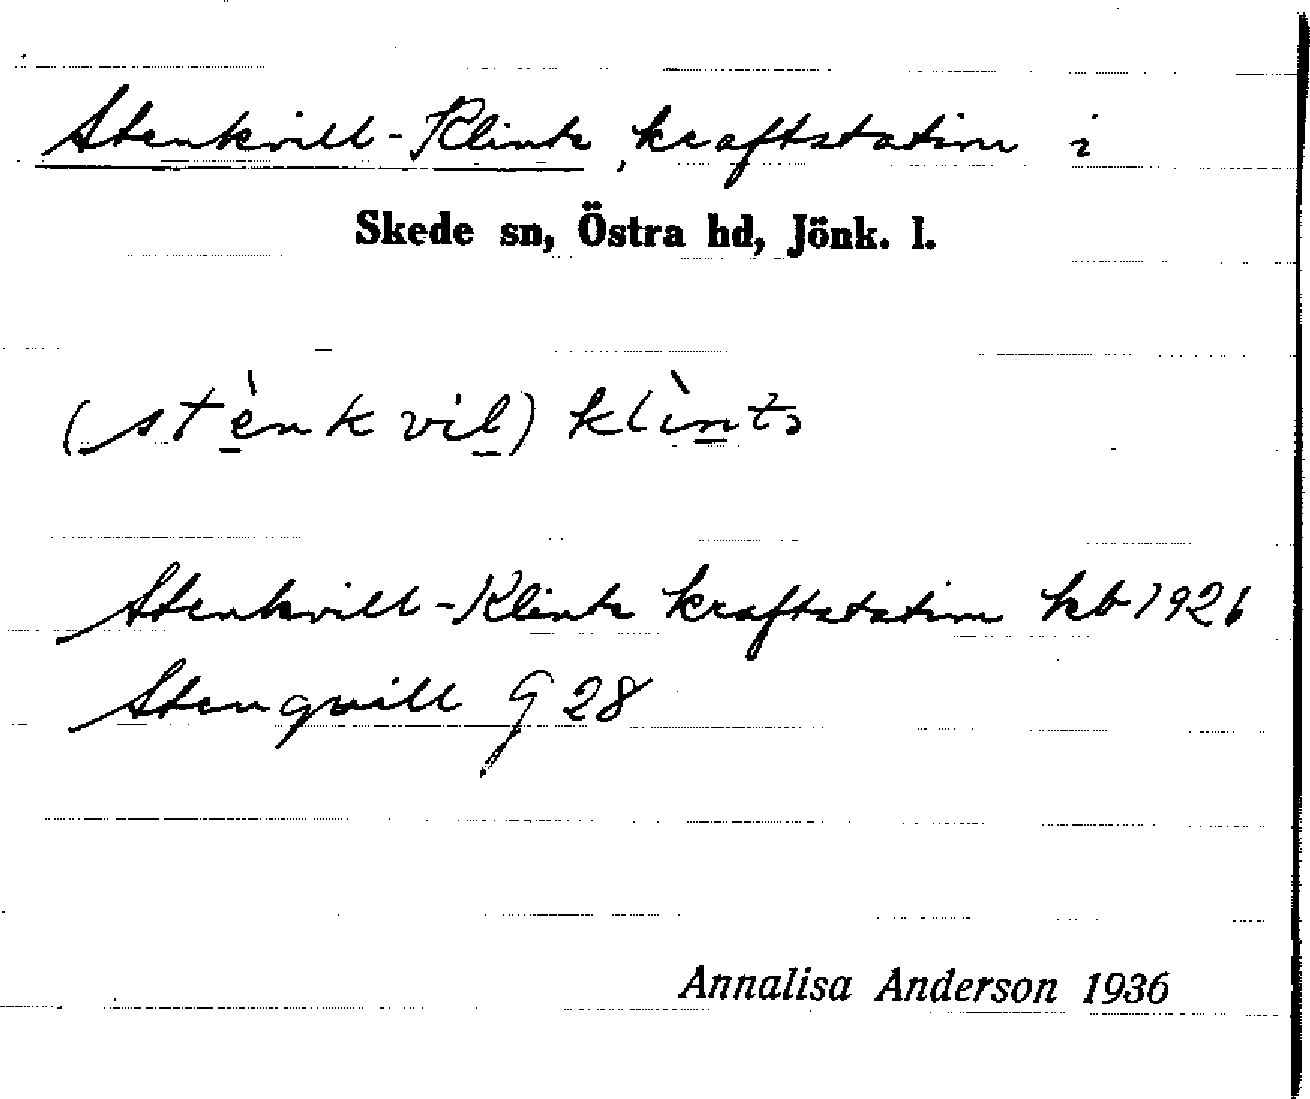 Stenkvill-Klints, kraftstation i
Skede sn, Östra hd, Jönk. l.
(stènkvil) klìnts
Stenkvill-Klints kraftstation kb 1926
Stenqvill G 28
Annalisa Anderson 1936